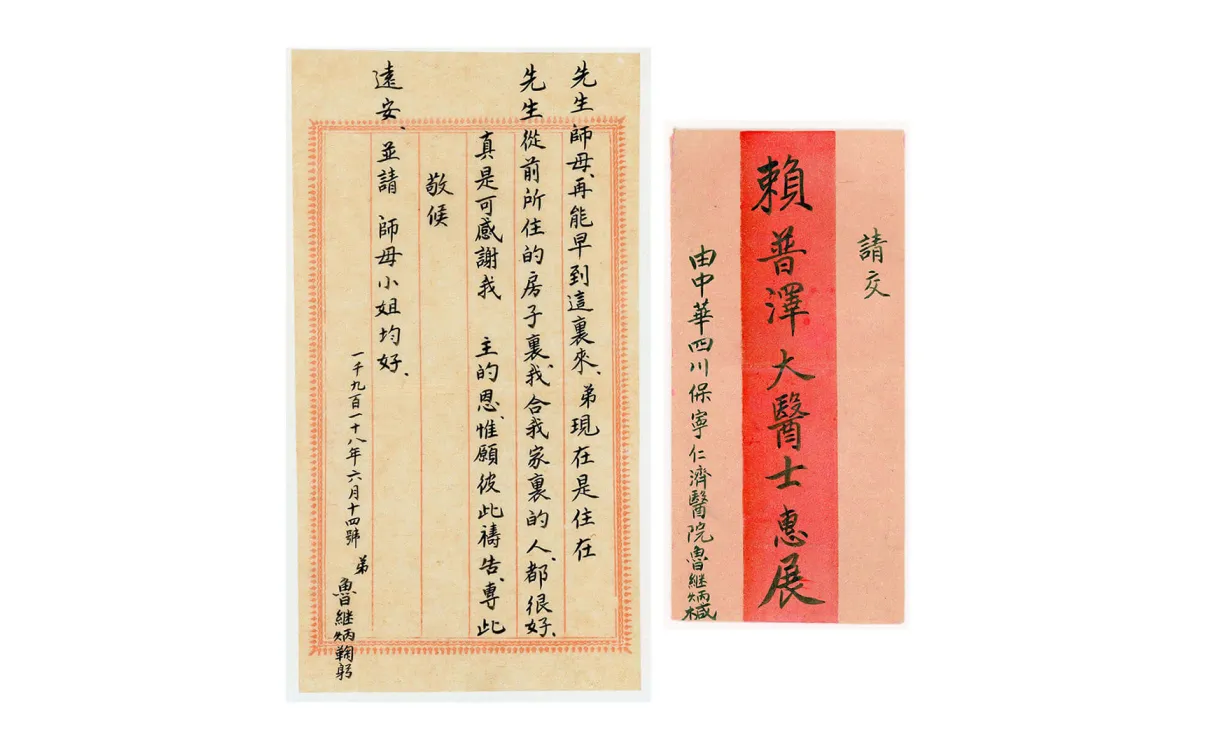 先生師母、再能早到這裏來、弟現在是住在
先生從前所住的房子裏、我合我家裏的人、都很好、
真是可感謝我 主的恩、惟願彼此禱告、專此
敬候
遠安、並請 師母小姐均好、
一千九百一十八年六月十四號 弟
魯継炳鞠躬
請交
賴普澤大醫士惠展
由中華四川保寧仁濟醫院魯継炳椷